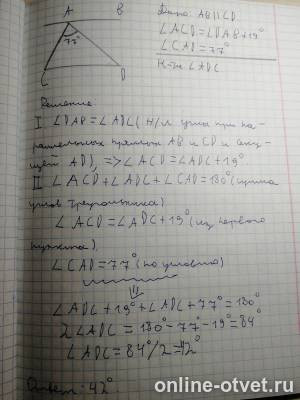 A B
77°
C
D
Дано: AB || CD.
∠ACD = ∠DAB + 19°
∠CAD = 77°
Н-ти: ∠ADC.
Решение.
I ∠DAB = ∠ADC (н/л углы при па-
раллельных прямых AB и CD и секу-
щей AD), => ∠ACD = ∠ADC + 19°
II ∠ACD + ∠ADC + ∠CAD = 180° (сумма
углов треугольника)
∠ACD = ∠ADC + 19° (из первого
пункта)
∠CAD = 77° (по условию)
∠ADC + 19° + ∠ADC + 77° = 180°
2∠ADC = 180° - 77° - 19° = 84°
∠ADC = 84°/2 = 42°
Ответ: 42°
online-otvet.ru